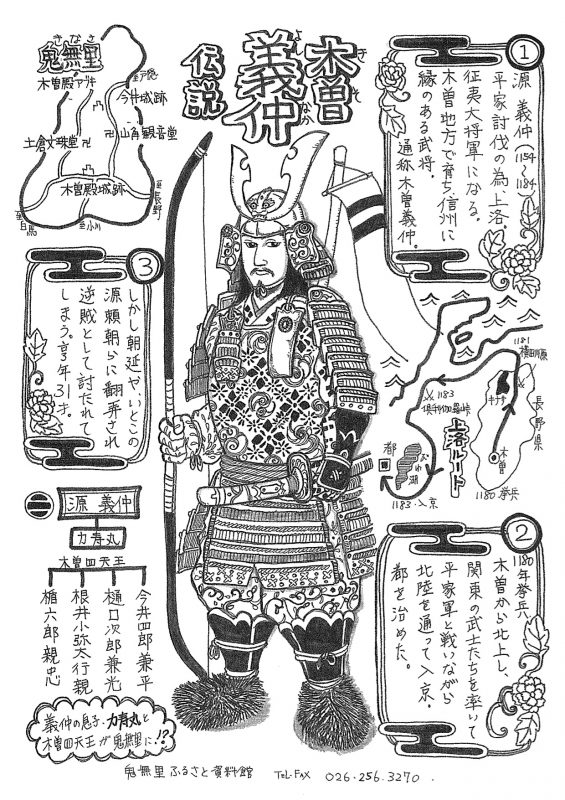 木曽
義仲
伝説
きそ
よしなか
きなさ
鬼無里
木曽殿アブキ
至戸隠
今井城跡
土倉文珠堂
山角観音堂
木曽殿城跡
至長野
至白馬
至小川
1
源 義仲(1154〜1184)
平家討伐の為上洛。
征夷大将軍になる。
木曽地方で育ち、信州に
縁のある武将。
通称 木曽義仲。
1181
横田河原
長野県
キナサ
木曽
1180 挙兵
1183
倶利伽羅峠
上洛ルート
都
びわ湖
1183.入京
2
1180年挙兵
木曽から北上し、
関東の武士たちを率いて
平家軍と戦いながら
北陸を通って入京。
都を治めた。
3
しかし朝廷やいとこの
源頼朝らに翻弄され
逆賊として討たれて
しまう。享年31才。
源 義仲
力寿丸
木曽四天王
今井四郎兼平
樋口次郎兼光
根井小弥太行親
楯六郎親忠
義仲の息子・力寿丸と
木曽四天王が鬼無里に!?
鬼無里ふるさと資料館 TEL・FAX 026-256-3270.